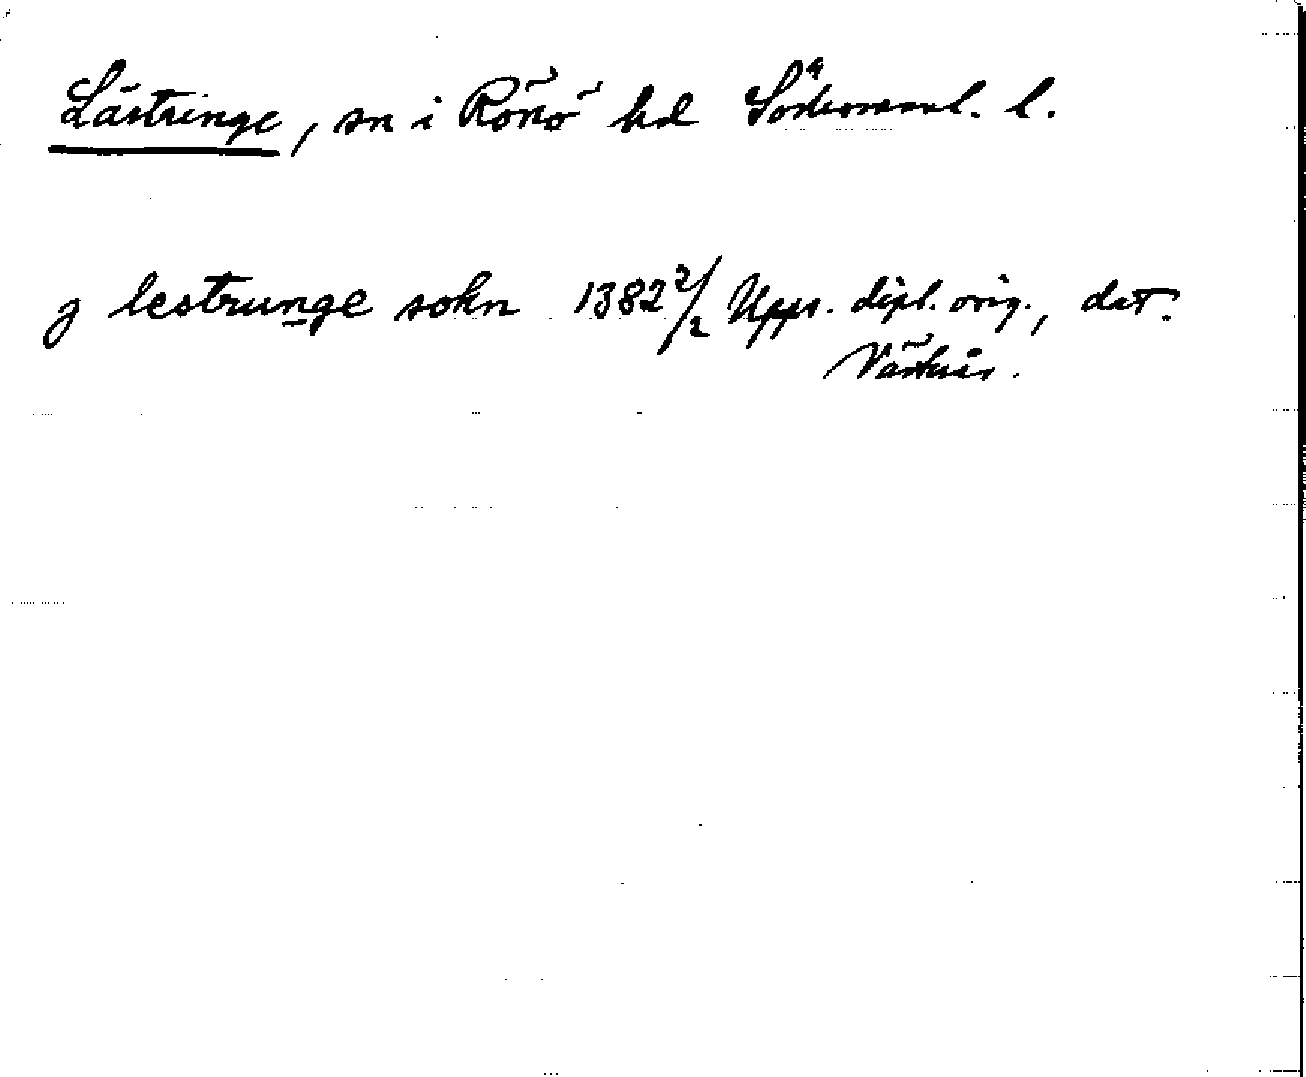 Lästringe, sn i Rönö hd Södermanl. l.
j lestrunge sokn 1382 2/2 Upps. dipl. orig., dat.
Västerås.